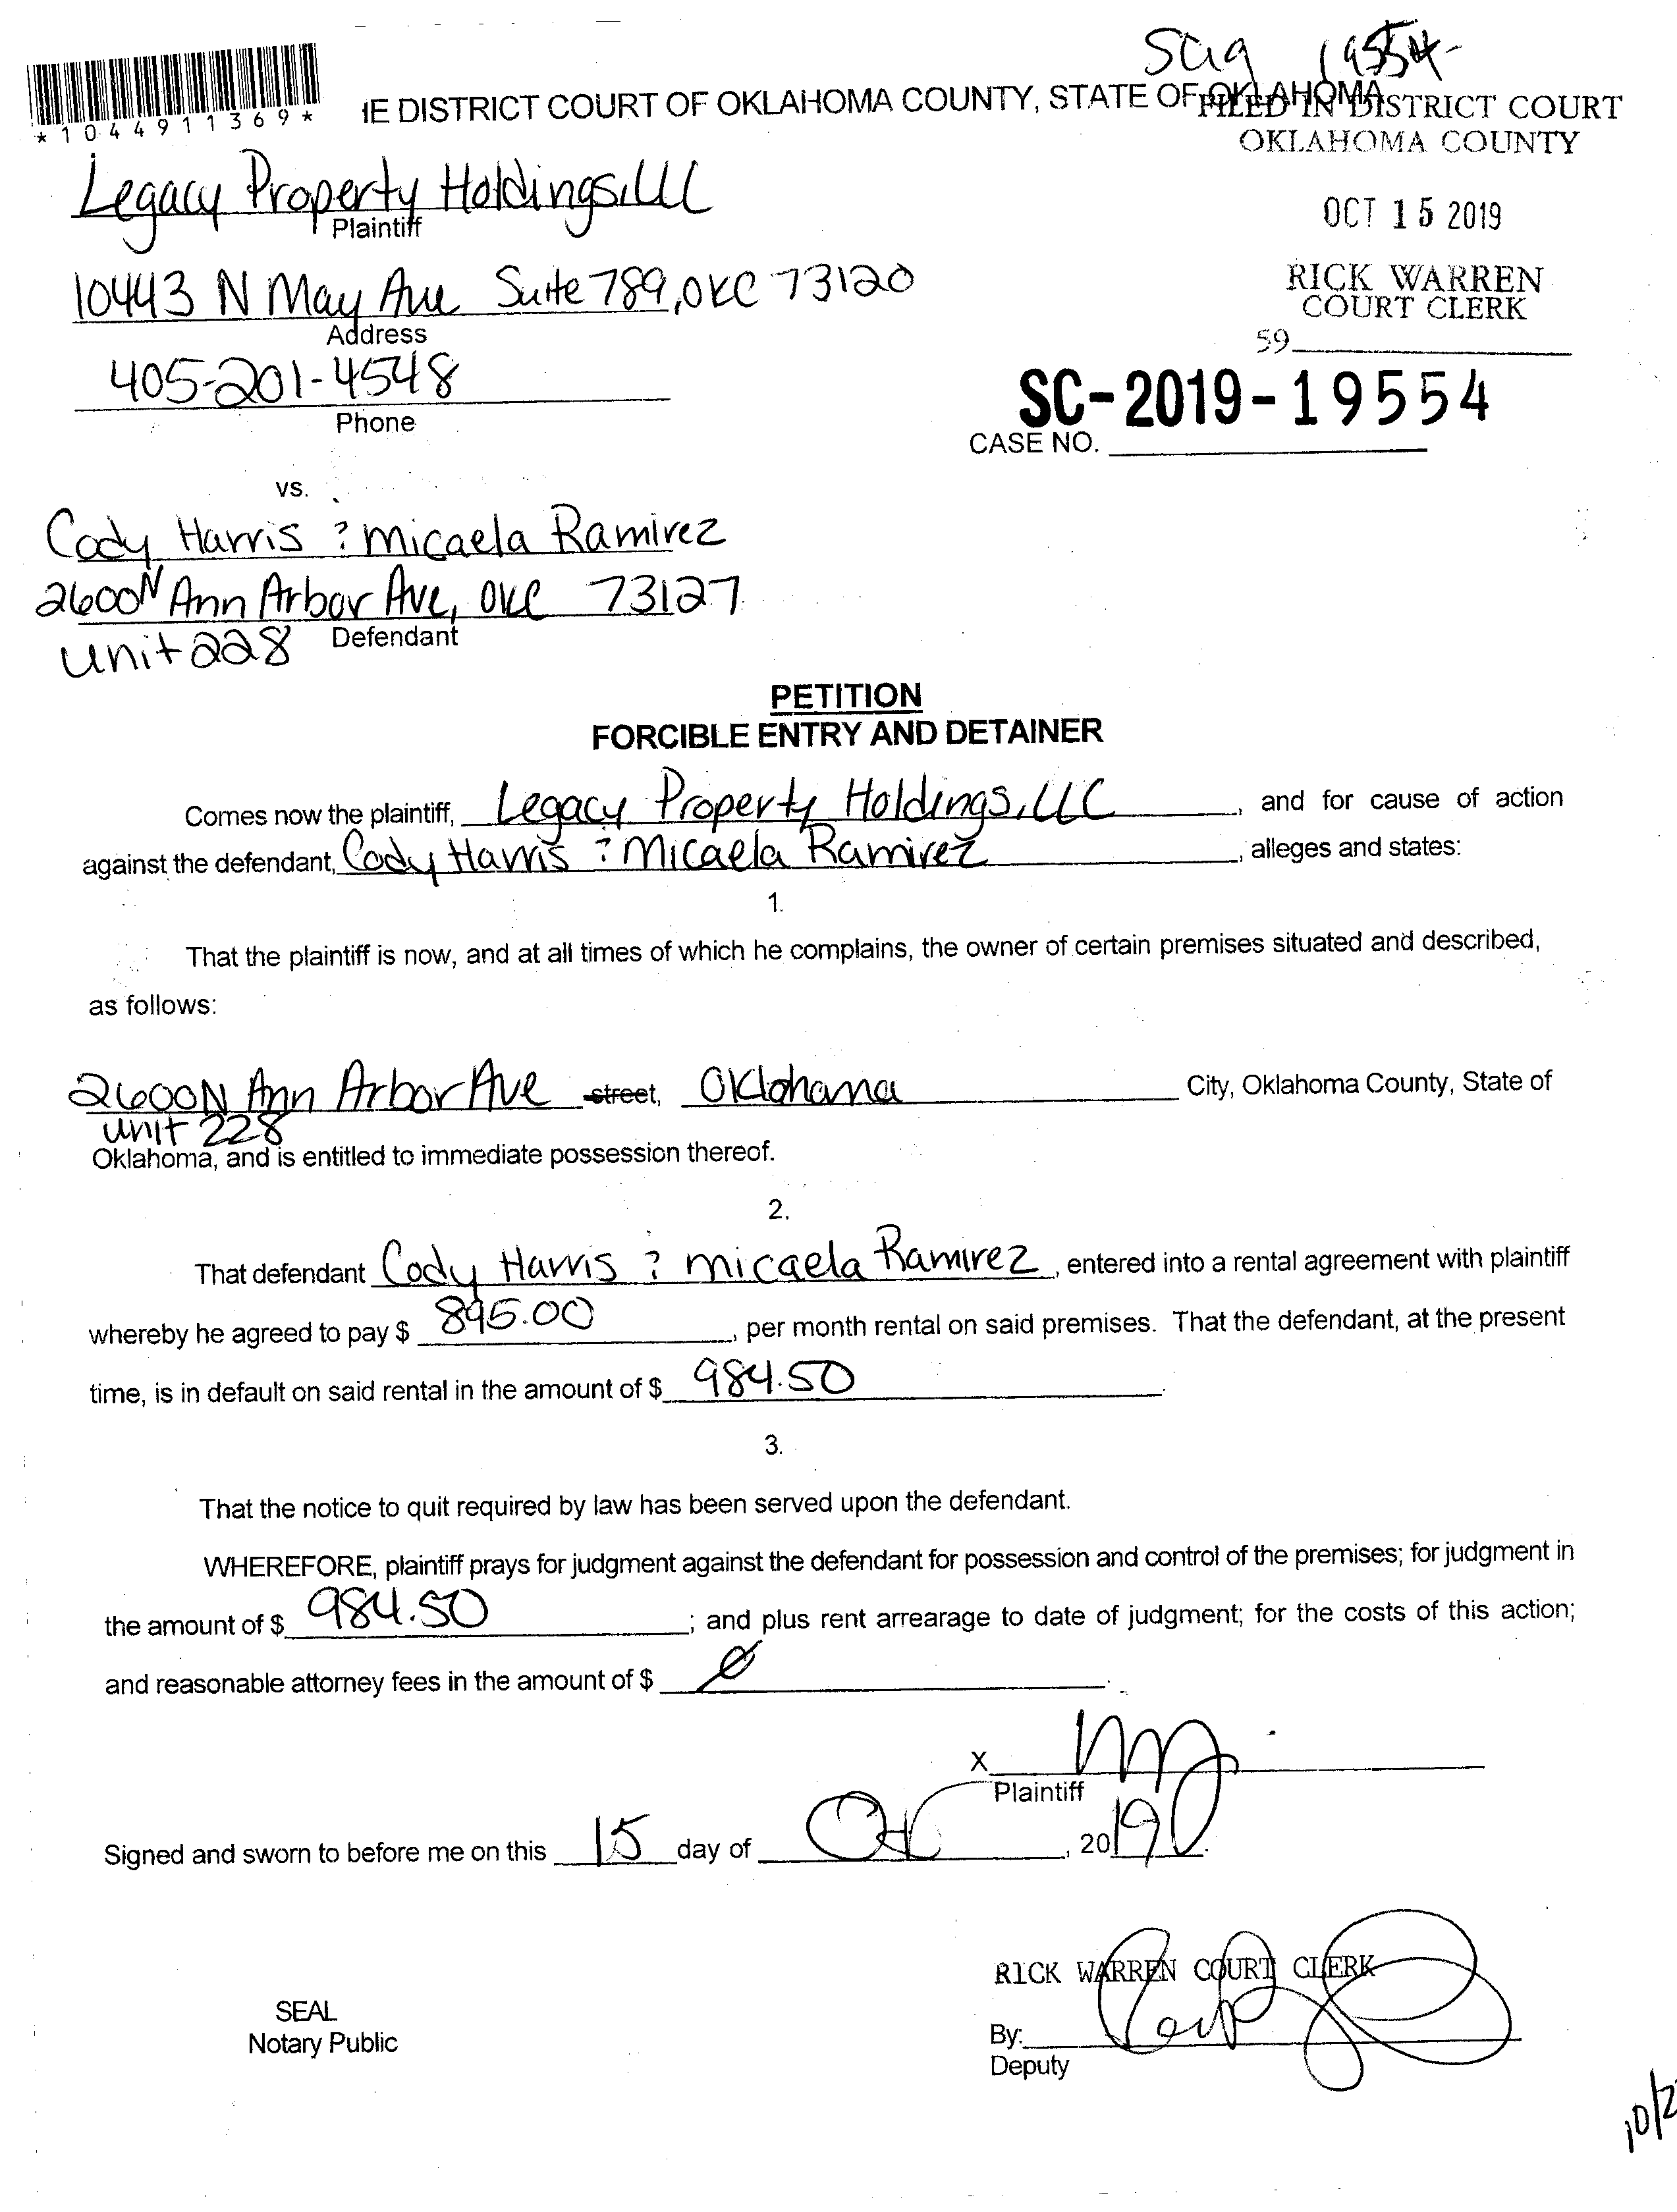 SC19 19554
IE DISTRICT COURT OF OKLAHOMA COUNTY, STATE OF OKLAHOMA
FILED IN DISTRICT COURT
OKLAHOMA COUNTY
*1044911369*
Legacy Property Holdings, LLC
Plaintiff
OCT 15 2019
10443 N May Ave Suite 789, OKC 73120
Address
RICK WARREN
COURT CLERK
59
405-201-4548
Phone
SC-2019-19554
CASE NO.
vs.
Cody Harris & Micaela Ramirez
2600 N Ann Arbor Ave, OKC 73127
Unit 228
Defendant
PETITION
FORCIBLE ENTRY AND DETAINER
Comes now the plaintiff, Legacy Property Holdings, LLC, and for cause of action
against the defendant, Cody Harris & Micaela Ramirez, alleges and states:
1.
That the plaintiff is now, and at all times of which he complains, the owner of certain premises situated and described,
as follows:
2600 N Ann Arbor Ave street, Oklahoma City, Oklahoma County, State of
unit 228
Oklahoma, and is entitled to immediate possession thereof.
2.
That defendant Cody Harris & Micaela Ramirez, entered into a rental agreement with plaintiff
whereby he agreed to pay $ 895.00, per month rental on said premises. That the defendant, at the present
time, is in default on said rental in the amount of $ 984.50.
3.
That the notice to quit required by law has been served upon the defendant.
WHEREFORE, plaintiff prays for judgment against the defendant for possession and control of the premises; for judgment in
the amount of $ 984.50; and plus rent arrearage to date of judgment; for the costs of this action;
and reasonable attorney fees in the amount of $ 0.
X
Plaintiff
Signed and sworn to before me on this 15 day of Oct, 2019.
RICK WARREN COURT CLERK
SEAL
Notary Public
By:
Deputy
10/2